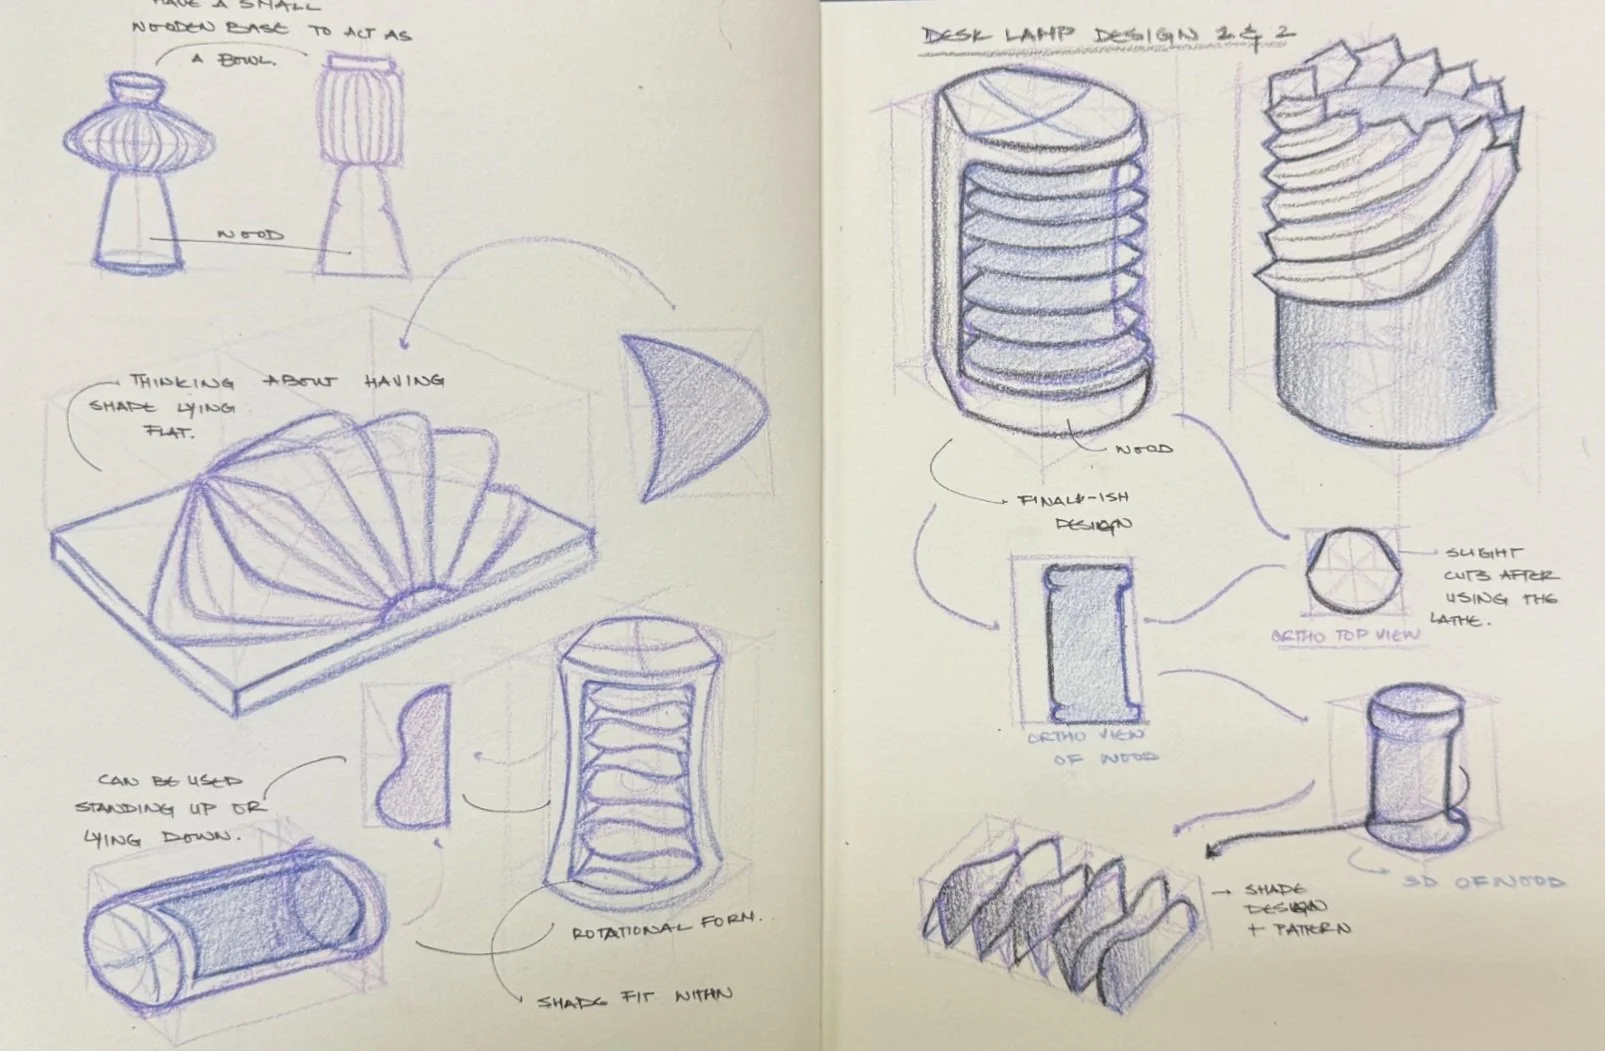 HAVE A SMALL
WOODEN BASE TO ACT AS
A BOWL.
WOOD
THINKING ABOUT HAVING
SHADE LYING
FLAT.
CAN BE USED
STANDING UP OR
LYING DOWN.
ROTATIONAL FORM.
SHADE FIT WITHIN
DESK LAMP DESIGN 1 & 2
WOOD
FINAL-ISH
DESIGN
SLIGHT
CUTS AFTER
USING THE
LATHE.
ORTHO TOP VIEW
ORTHO VIEW
OF WOOD
3D OF WOOD
SHADE
DESIGN
+ PATTERN